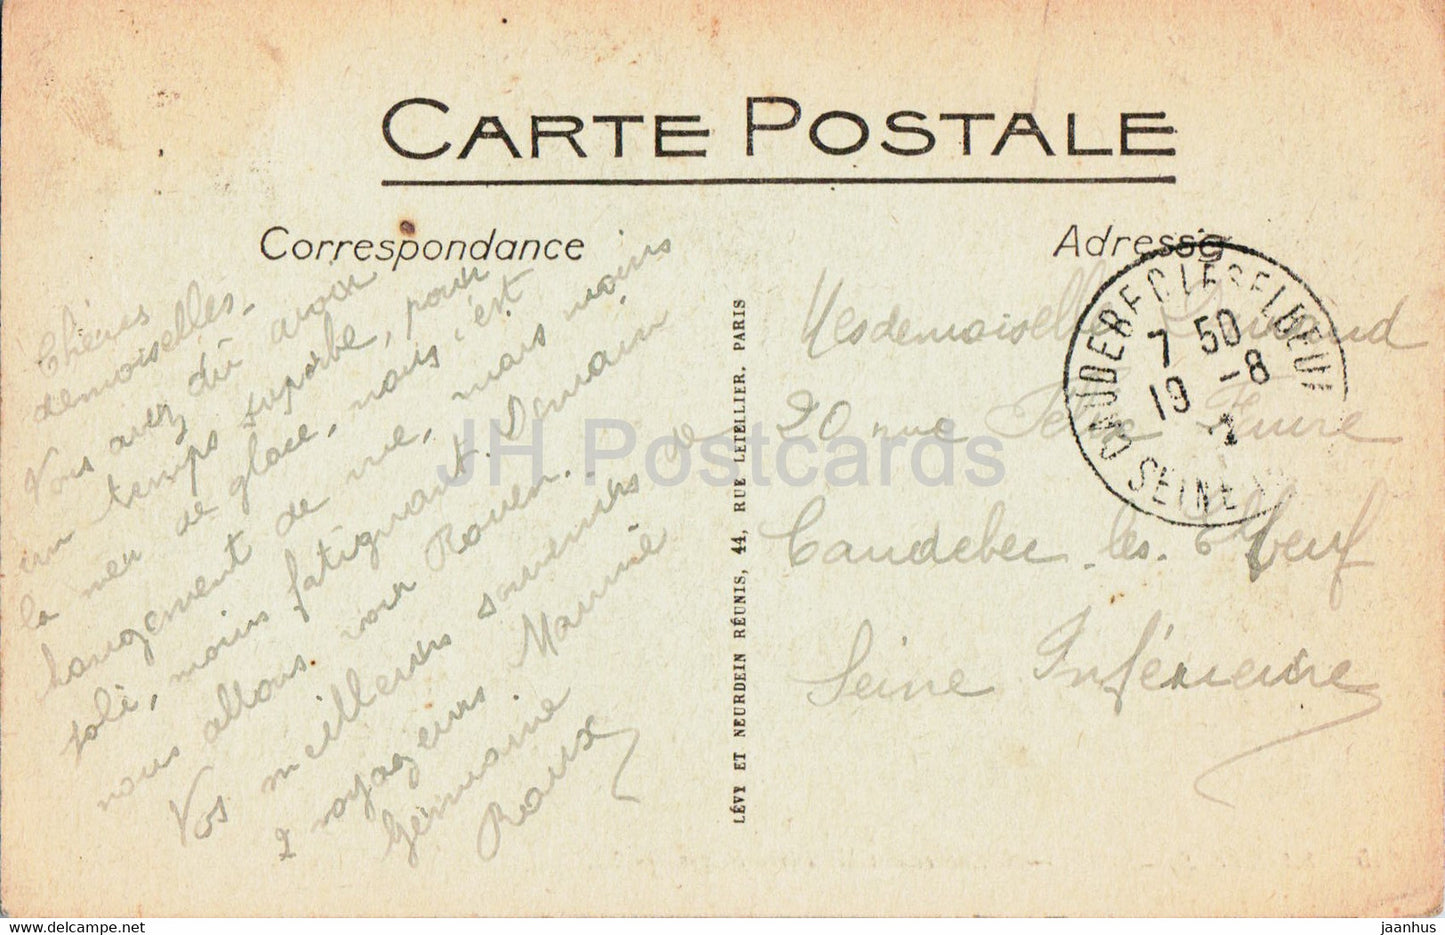 CARTE POSTALE
Correspondance
Adresse
Chères
demoiselles.
Vous avez dû avoir
un temps superbe, pour
la mer de glace, nous c'est
changement de vue, mais moins
joli, moins fatigant. Demain
nous allons voir Rouen..
Vos meilleurs souvenirs de
2 voyageurs Maurice
Germaine
Roux
LÉVY ET NEURDEIN RÉUNIS, 44, RUE LETELLIER, PARIS
Mesdemoiselles
20 rue Félix Faure
Caudebec-les-Elbeuf
Seine Inférieure
CAUDEBEC LES ELBEUF
7 50
-8
19 2
SEINE
JH Postcards
www.delcampe.net
jaanhus